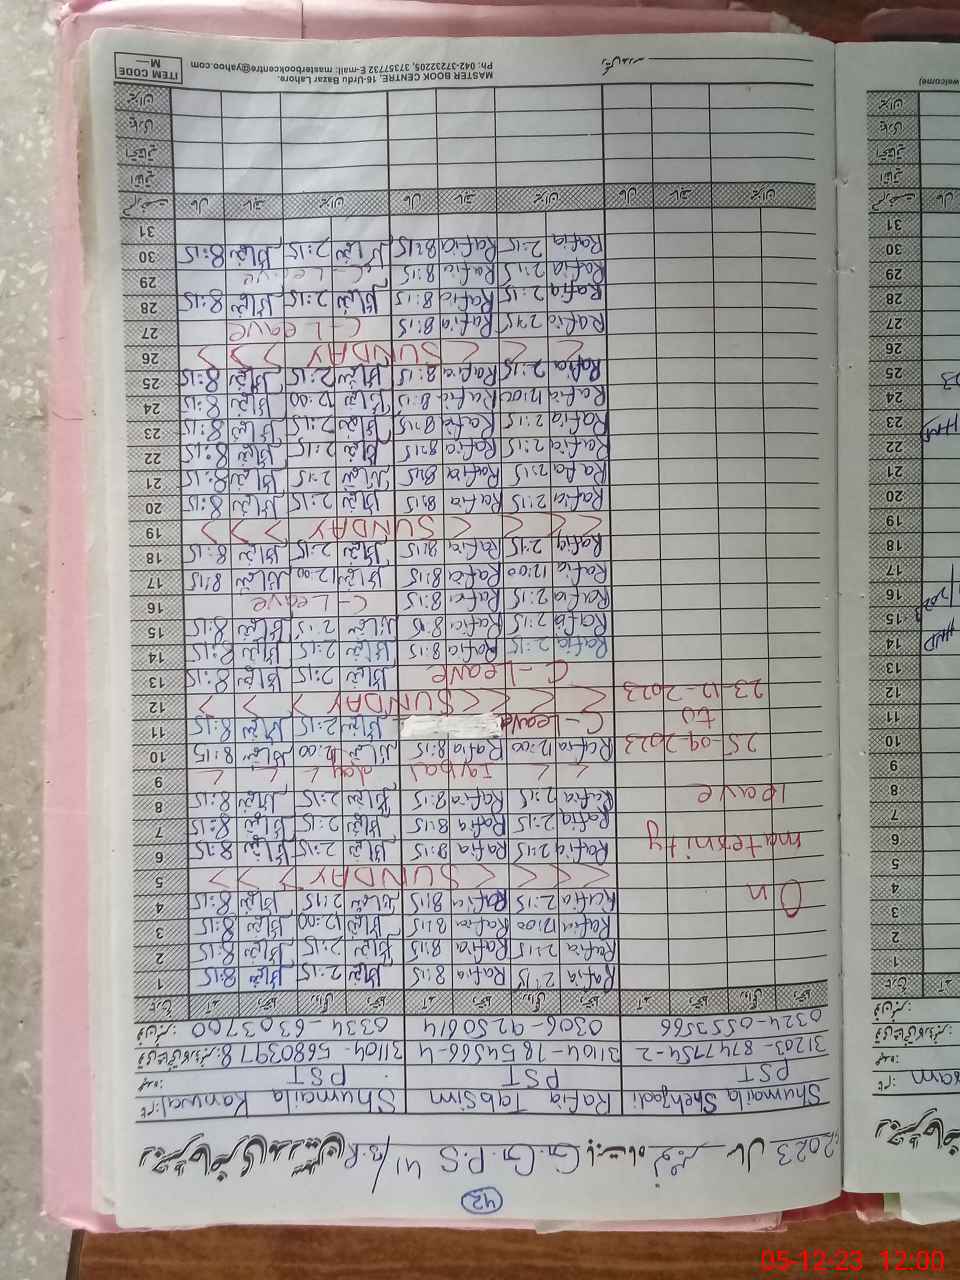 42
رجسٹر حاضری مدرسین G.G.P.S 41/3.R بابت ماہ نومبر سال 2023
Shumaila Shehzadi Rafia Tabsim Shumaila Kanwal نام:
PST PST PST عہدہ:
31203-8747754-2 31104-7854566-4 31104-5680397-8
0324-0553566 0306-9250614 0334-6303700
Rafia 2:15 Rafia 8:15 شمائلہ 2:15 شمائلہ 8:15 1
Rafia 2:15 Rafia 8:15 شمائلہ 2:15 شمائلہ 8:15 2
Rafia 12:00 Rafia 8:15 شمائلہ 12:00 شمائلہ 8:15 3
On Rafia 2:15 Rafia 8:15 شمائلہ 2:15 شمائلہ 8:15 4
SUNDAY 5
maternity Rafia 2:15 Rafia 8:15 شمائلہ 2:15 شمائلہ 8:15 6
Rafia 2:15 Rafia 8:15 شمائلہ 2:15 شمائلہ 8:15 7
leave Rafia 2:15 Rafia 8:15 شمائلہ 2:15 شمائلہ 8:15 8
Iqbal day 9
25-09-2023 Rafia 12:00 Rafia 8:15 شمائلہ 12:00 شمائلہ 8:15 10
to C-Leave شمائلہ 2:15 شمائلہ 8:15 11
23-12-2023 SUNDAY 12
C-Leave شمائلہ 2:15 شمائلہ 8:15 13
Rafia 2:15 Rafia 8:15 شمائلہ 2:15 شمائلہ 8:15 14
Rafia 2:15 Rafia 8:15 شمائلہ 2:15 شمائلہ 8:15 15
Rafia 2:15 Rafia 8:15 C-Leave 16
Rafia 12:00 Rafia 8:15 شمائلہ 12:00 شمائلہ 8:15 17
Rafia 2:15 Rafia 8:15 شمائلہ 2:15 شمائلہ 8:15 18
SUNDAY 19
Rafia 2:15 Rafia 8:15 شمائلہ 2:15 شمائلہ 8:15 20
Rafia 2:15 Rafia 8:15 شمائلہ 2:15 شمائلہ 8:15 21
Rafia 2:15 Rafia 8:15 شمائلہ 2:15 شمائلہ 8:15 22
Rafia 2:15 Rafia 8:15 شمائلہ 2:15 شمائلہ 8:15 23
Rafia 12:00 Rafia 8:15 شمائلہ 12:00 شمائلہ 8:15 24
Rafia 2:15 Rafia 8:15 شمائلہ 2:15 شمائلہ 8:15 25
SUNDAY 26
Rafia 2:15 Rafia 8:15 C-Leave 27
Rafia 2:15 Rafia 8:15 شمائلہ 2:15 شمائلہ 8:15 28
Rafia 2:15 Rafia 8:15 C-Leave 29
Rafia 2:15 Rafia 8:15 شمائلہ 2:15 شمائلہ 8:15 30
31
MASTER BOOK CENTRE, 16-Urdu Bazar Lahore.
Ph: 042-37232205, 37357732 E-mail: masterbookcentre@yahoo.com
ITEM CODE
M—
05-12-23 12:00